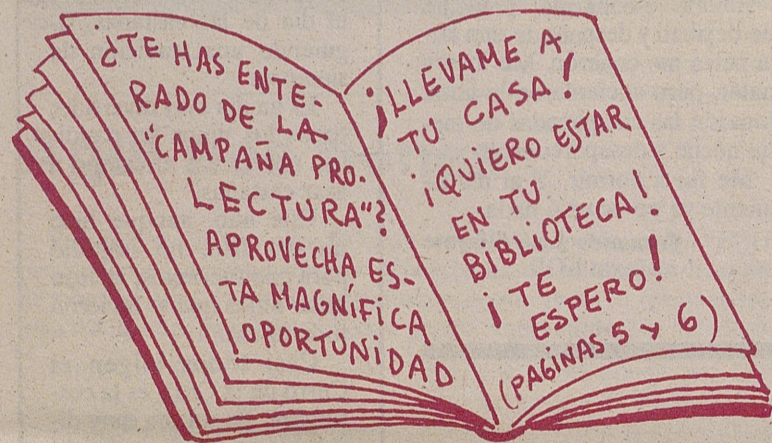 ¿TE HAS ENTE-
RADO DE LA
"CAMPAÑA PRO-
LECTURA"?
APROVECHA ES-
TA MAGNÍFICA
OPORTUNIDAD
¡LLEVAME A
TU CASA!
¡QUIERO ESTAR
EN TU
BIBLIOTECA!
¡TE
ESPERO!
(PAGINAS 5 y 6)